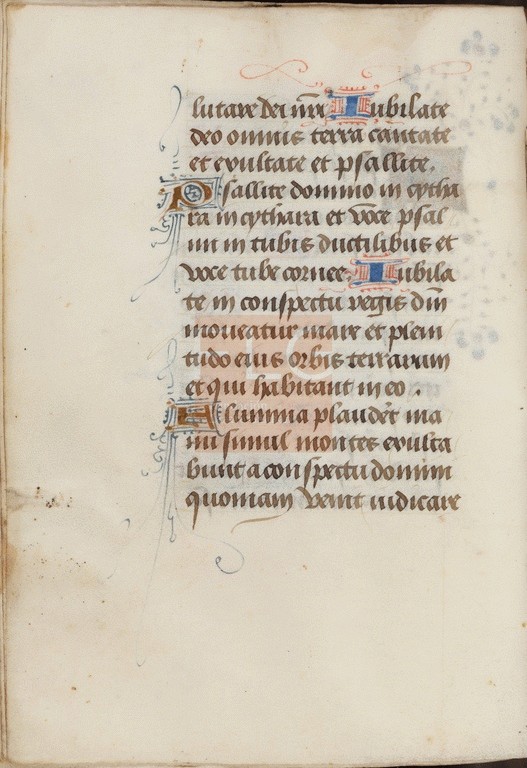 lutare dei nr̄i Iubilate
deo omnis terra cantate
et exultate et psallite.
Psallite domino in cytha
ra in cythara et voce psal
mi in tubis ductilibus et
voce tube cornee. Iubila
te in conspectu regis dn̄i
moueatur mare et pleni
tudo eius orbis terrarum
et qui habitant in eo.
Flumina plaudēt ma
nu simul montes exulta
bunt a conspectu domini
quoniam venit iudicare